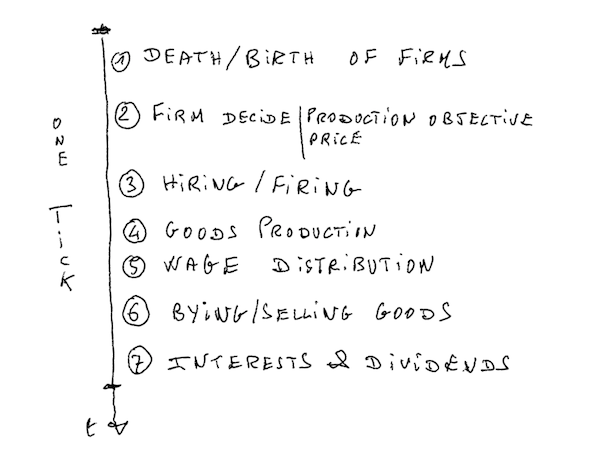 ① DEATH/BIRTH OF FIRMS
② FIRM DECIDE | PRODUCTION OBJECTIVE
PRICE
③ HIRING/FIRING
④ GOODS PRODUCTION
⑤ WAGE DISTRIBUTION
⑥ BYING/SELLING GOODS
⑦ INTERESTS & DIVIDENDS
ONE TICK
t